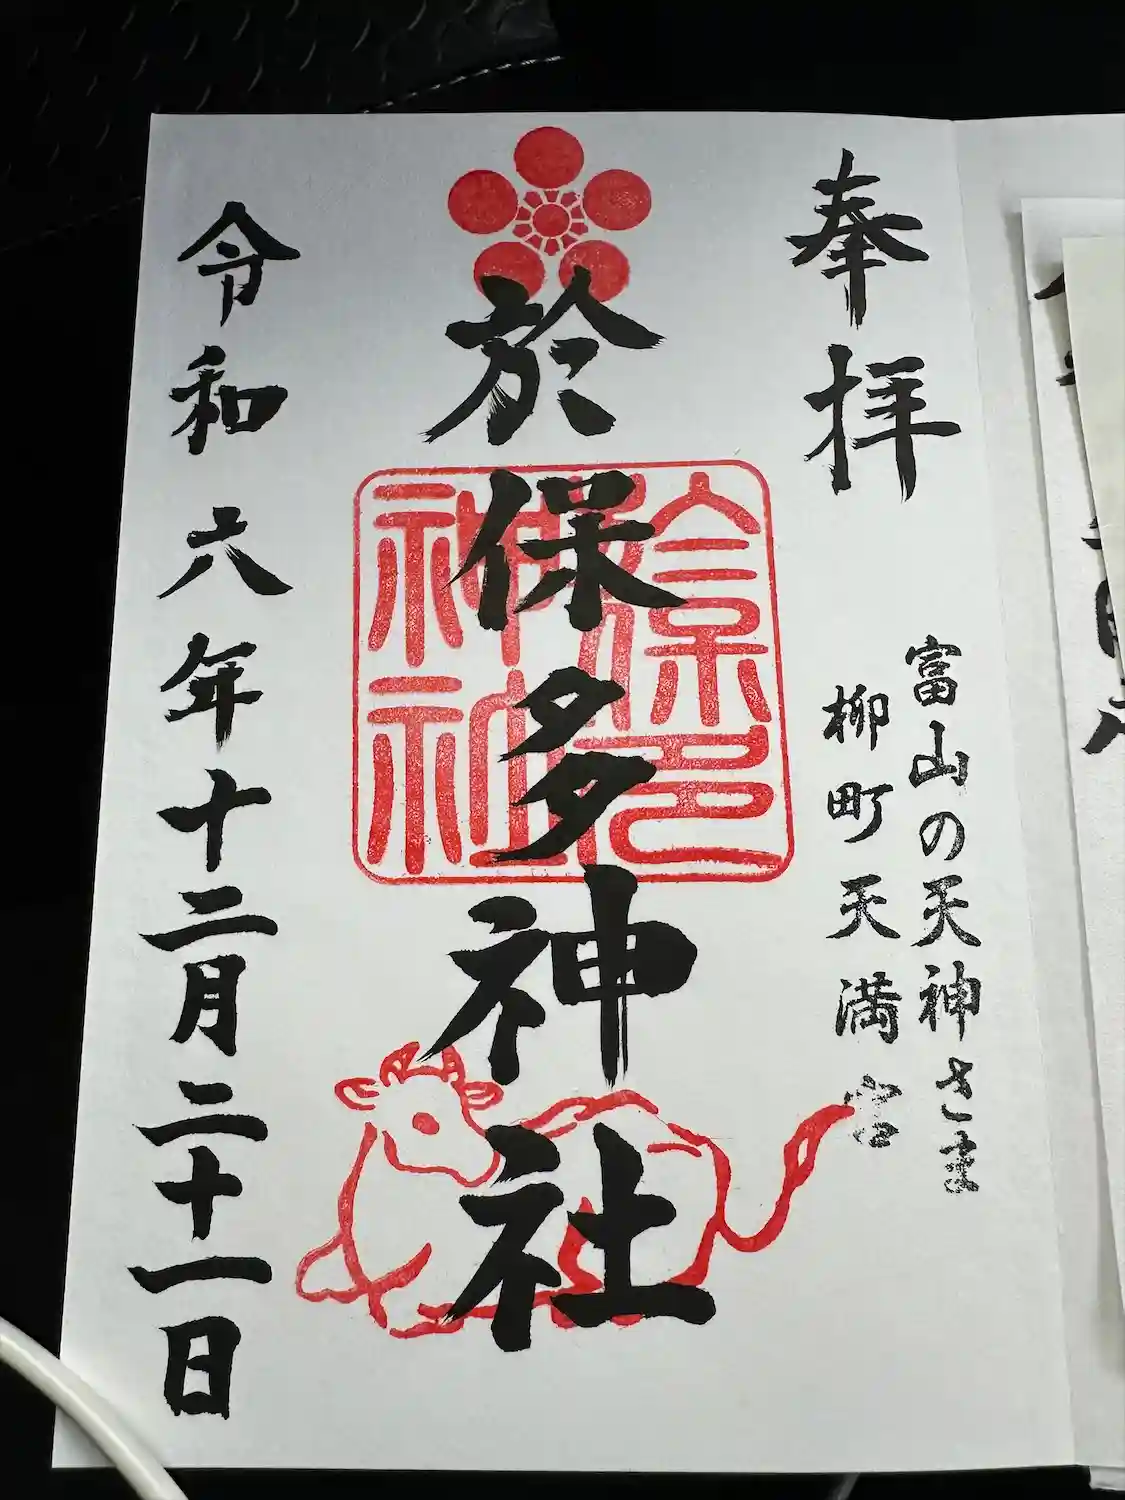 奉拝
富山の天神さま
柳町天満宮
於保多神社
於保多神社
令和六年十二月二十一日